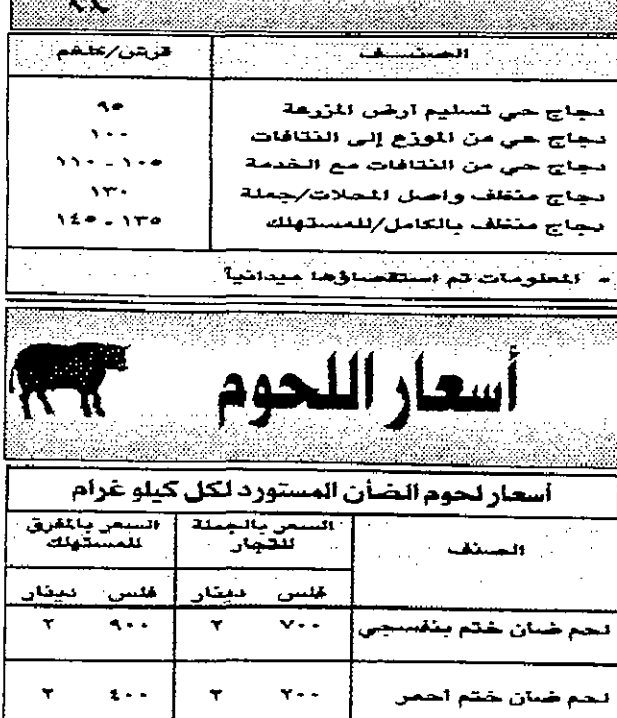 الصنف قرش/كلغم
دجاج حي تسليم أرض المزرعة ٩٥
دجاج حي من الموزع إلى النتافات ١٠٠
دجاج حي من النتافات مع الخدمة ١٠٥ - ١١٠
دجاج منظف واصل المحلات/جملة ١٣٠
دجاج منظف بالكامل/للمستهلك ١٣٥ - ١٤٥
* المعلومات تم استقصاؤها ميدانياً
أسعار اللحوم
أسعار لحوم الضأن المستورد لكل كيلو غرام
الصنف السعر بالجملة للتجار السعر بالمفرق للمستهلك
فلس دينار فلس دينار
لحم ضأن ختم بنفسجي ٧٠٠ ٢ ٩٠٠ ٢
لحم ضأن ختم أحمر ٢٠٠ ٢ ٤٠٠ ٢